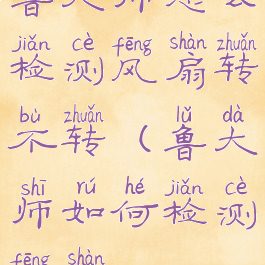 鲁大师怎么
jiǎn cè fēng shàn zhuǎn
检测风扇转
bù zhuǎn lǔ dà
不转(鲁大
shī rú hé jiǎn cè
师如何检测
fēng shàn